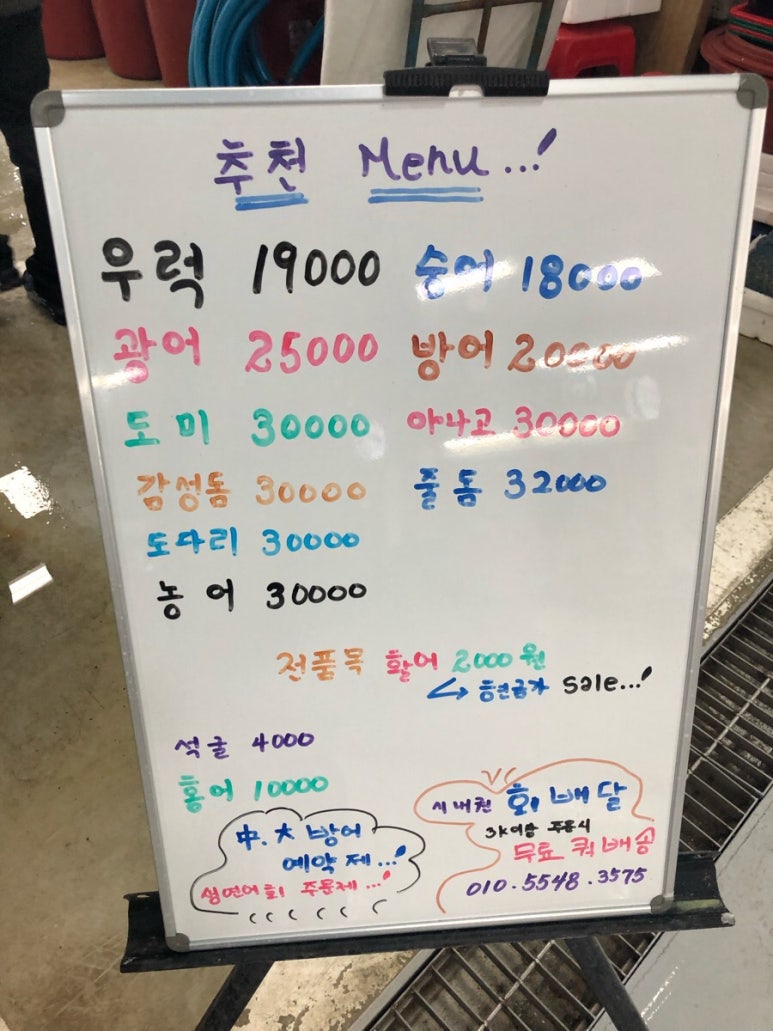 추천 Menu...!
우럭 19000 숭어 18000
광어 25000 방어 20000
도미 30000 아나고 30000
감성돔 30000 줄돔 32000
도다리 30000
농어 30000
전품목 활어 2000원
↳ 현금가 sale...!
석굴 4000
홍어 10000
中.大 방어
예약제...!
생연어회 주문제...!
시내권 회 배달
3k이상 주문시
무료 퀵 배송
010.5548.3575